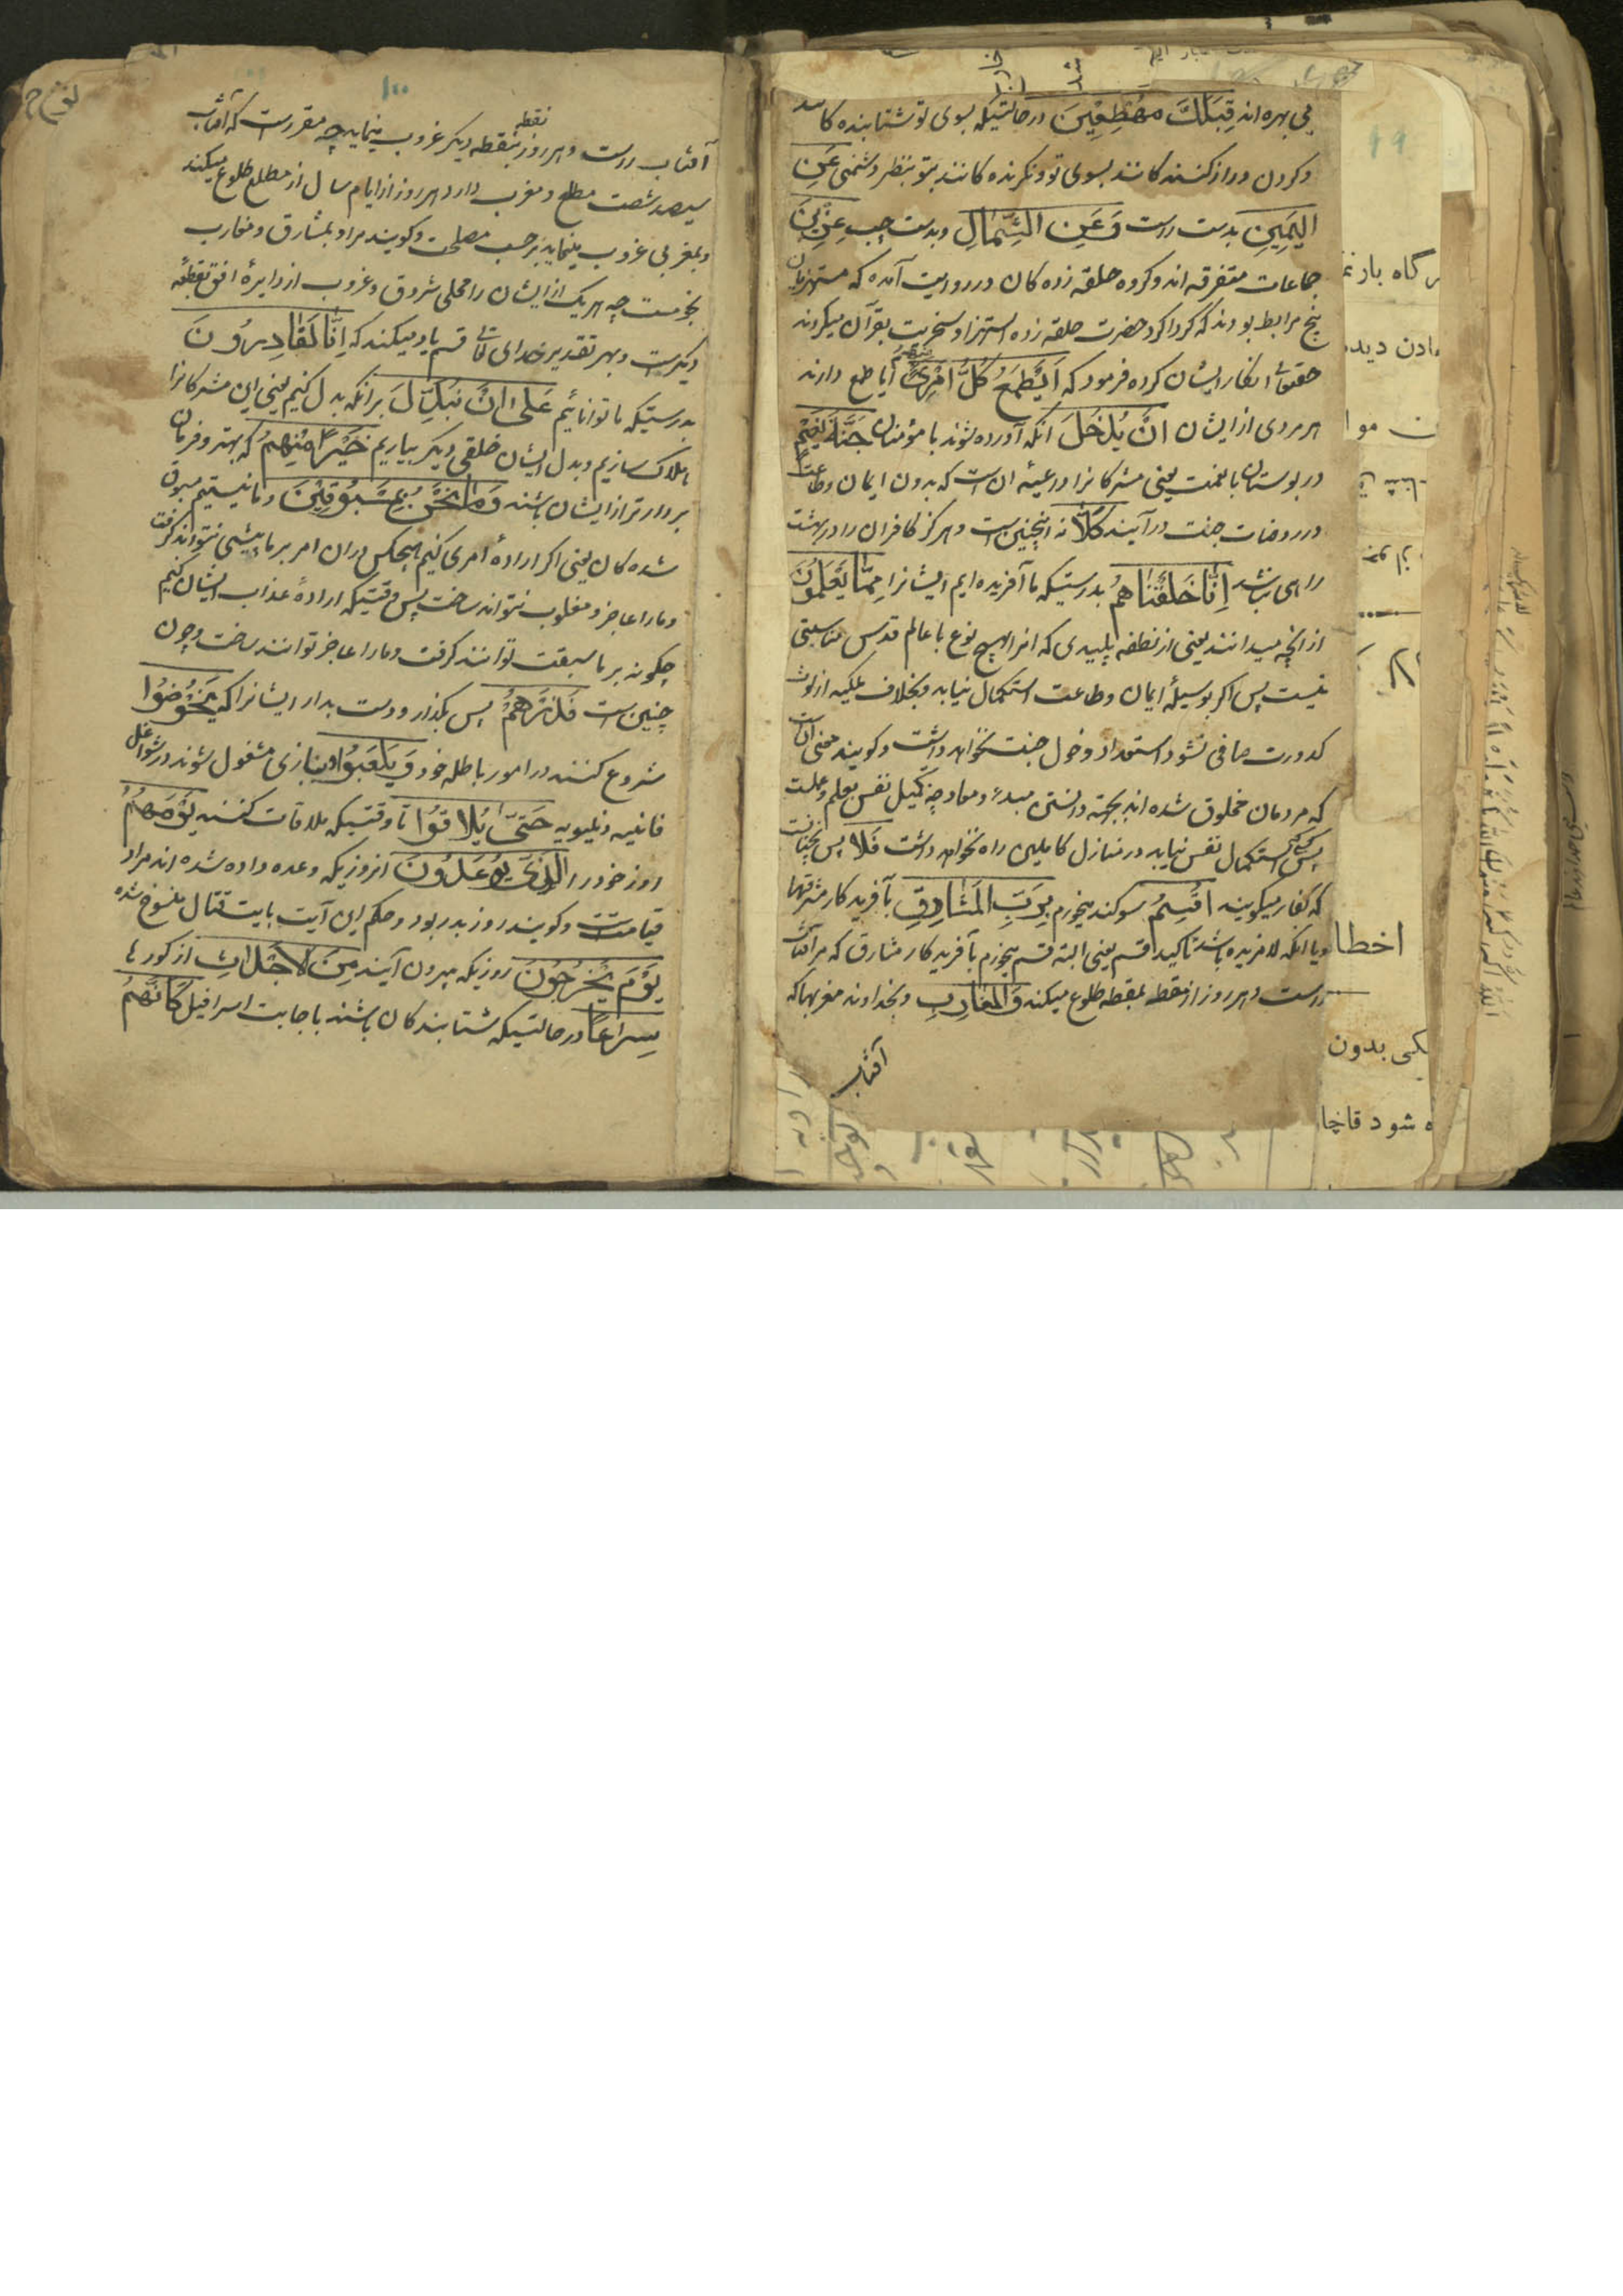 بی بهره اند قِبَلَكَ مُهْطِعِينَ در حالتیکه بسوی تو شتابنده کانند
و کردن دراز کنند کانند بسوی تو و نکرنده کانند بتو بنظر دشمنی عَنِ
الیَمِینِ بدست راست وَعَنِ الشِّمَالِ و بدست چپ عِزِينَ
جماعات متفرقه اند و کروه حلقه زده کان در روایت آمده که مستهزیان
پنج مرابط بودند که کرداکرد حضرت حلقه زده استهزا و سخریت بقرآن میکردند
حقتعا انکار ایشان کرده فرمود که اَیَطْمَعُ كُلُّ امْرِئٍ مِنْهُمْ آیا طمع دارند
هر مردی از ایشان اَنْ یُدْخَلَ آنکه آورده شوند با مؤمنان جَنَّةَ نَعِيمٍ
در بوستان با نعمت یعنی مشرکانرا داعیه آن است که بدون ایمان و طاعت
در روضات جنت در آیند کَلَّا نه اینچنین است و هرکز کافران را در بهشت
راهی نباشد اِنَّا خَلَقْنَاهُمْ بدرستیکه ما آفریده ایم ایشانرا مِمَّا یَعْلَمُونَ
از آنچه میدانند یعنی از نطفه پلیدی که انرا هیچ نوع با عالم قدس مناسبتی
نیست پس اکر بوسیلهٔ ایمان و طاعت استکمال نیابد و بخلاف ملکیه از لوث
کدورت صافی نشود استعداد دخول جنت نخواهد داشت و کویند معنی آنست
که مردمان مخلوق شده اند بجهته دانستن مبداء و معاد چه تکمیل نفس بعلم و عملست
پس هرکه استکمال نفس نیابد در منازل کاملین راه نخواهد داشت فَلَا پس نچنانست
که کفار میکویند اُقْسِمُ سوکند میخورم بِرَبِّ المَشَارِقِ بآفریدکار مشرقها
و یا انکه لا مزیده باشد تاکید قسم یعنی البته قسم میخورم بآفریدکار مشارق که مر آفتاب
راست و هر روز از نقطه بنقطه طلوع میکند وَالمَغَارِبِ و بخداوند مغربها که
آفتاب
۹۹
اخطا
ه شود قاچا
۱۰۰
آفتاب راست و هر روز بنقطه نقطه دیکر غروب مینماید چه مقرر است که آفتاب
سیصد شصت مطلع و مغرب دارد هر روز از ایام سال از مطلع طلوع میکند
و بمغربی غروب مینماید بر حسب مصلحت و کویند مراد بمشارق و مغارب
نجومست چه هر یک از ایشان را محلی شروق و غروب از دایرهٔ افق نقطهٔ
دیکرست و بهر تقدیر خدای تعا قسم یاد میکند که اِنَّا لَقَادِرُونَ
بدرستیکه ما توانائیم عَلی اَنْ نُبَدِّلَ بر آنکه بدل کنیم یعنی این مشرکانرا
هلاک سازیم و بدل ایشان خلقی دیکر بیاریم خَيْرًا مِنْهُمْ که بهتر و فرمان
بردارتر از ایشان باشند وَمَا نَحْنُ بِمَسْبُوقِينَ و ما نیستیم مسبوق
شده کان یعنی اکر ارادهٔ امری کنیم هیچکس دران امر بر ما پیشی نتواند کرفت
و مارا عاجز و مغلوب نتواند ساخت پس وقتیکه ارادهٔ عذاب ایشان کنیم
چکونه بر ما سبقت توانند کرفت و مارا عاجز توانند ساخت و چون
چنین است فَذَرْهُمْ پس بکذار و دست بدار ایشانرا که یَخُوضُوا
شروع کنند در امور باطله خود وَیَلْعَبُوا و ببازی مشغول شوند در شواغل
فانیه دنیویه حَتّٰی یُلَاقُوا تا وقتیکه ملاقات کنند یَوْمَهُمُ
روز خود را الَّذِی یُوعَدُونَ انروزیکه وعده داده شده اند مراد
قیامتست و کویند روز بدر بود و حکم این آیت بایت قتال منسوخ شده
یَوْمَ یَخْرُجُونَ روزیکه بیرون آیند مِنَ الاَجْدَاثِ از کورها
سِرَاعًا در حالتیکه شتابندکان باشند باجابت اسرافیل کَاَنَّهُمْ